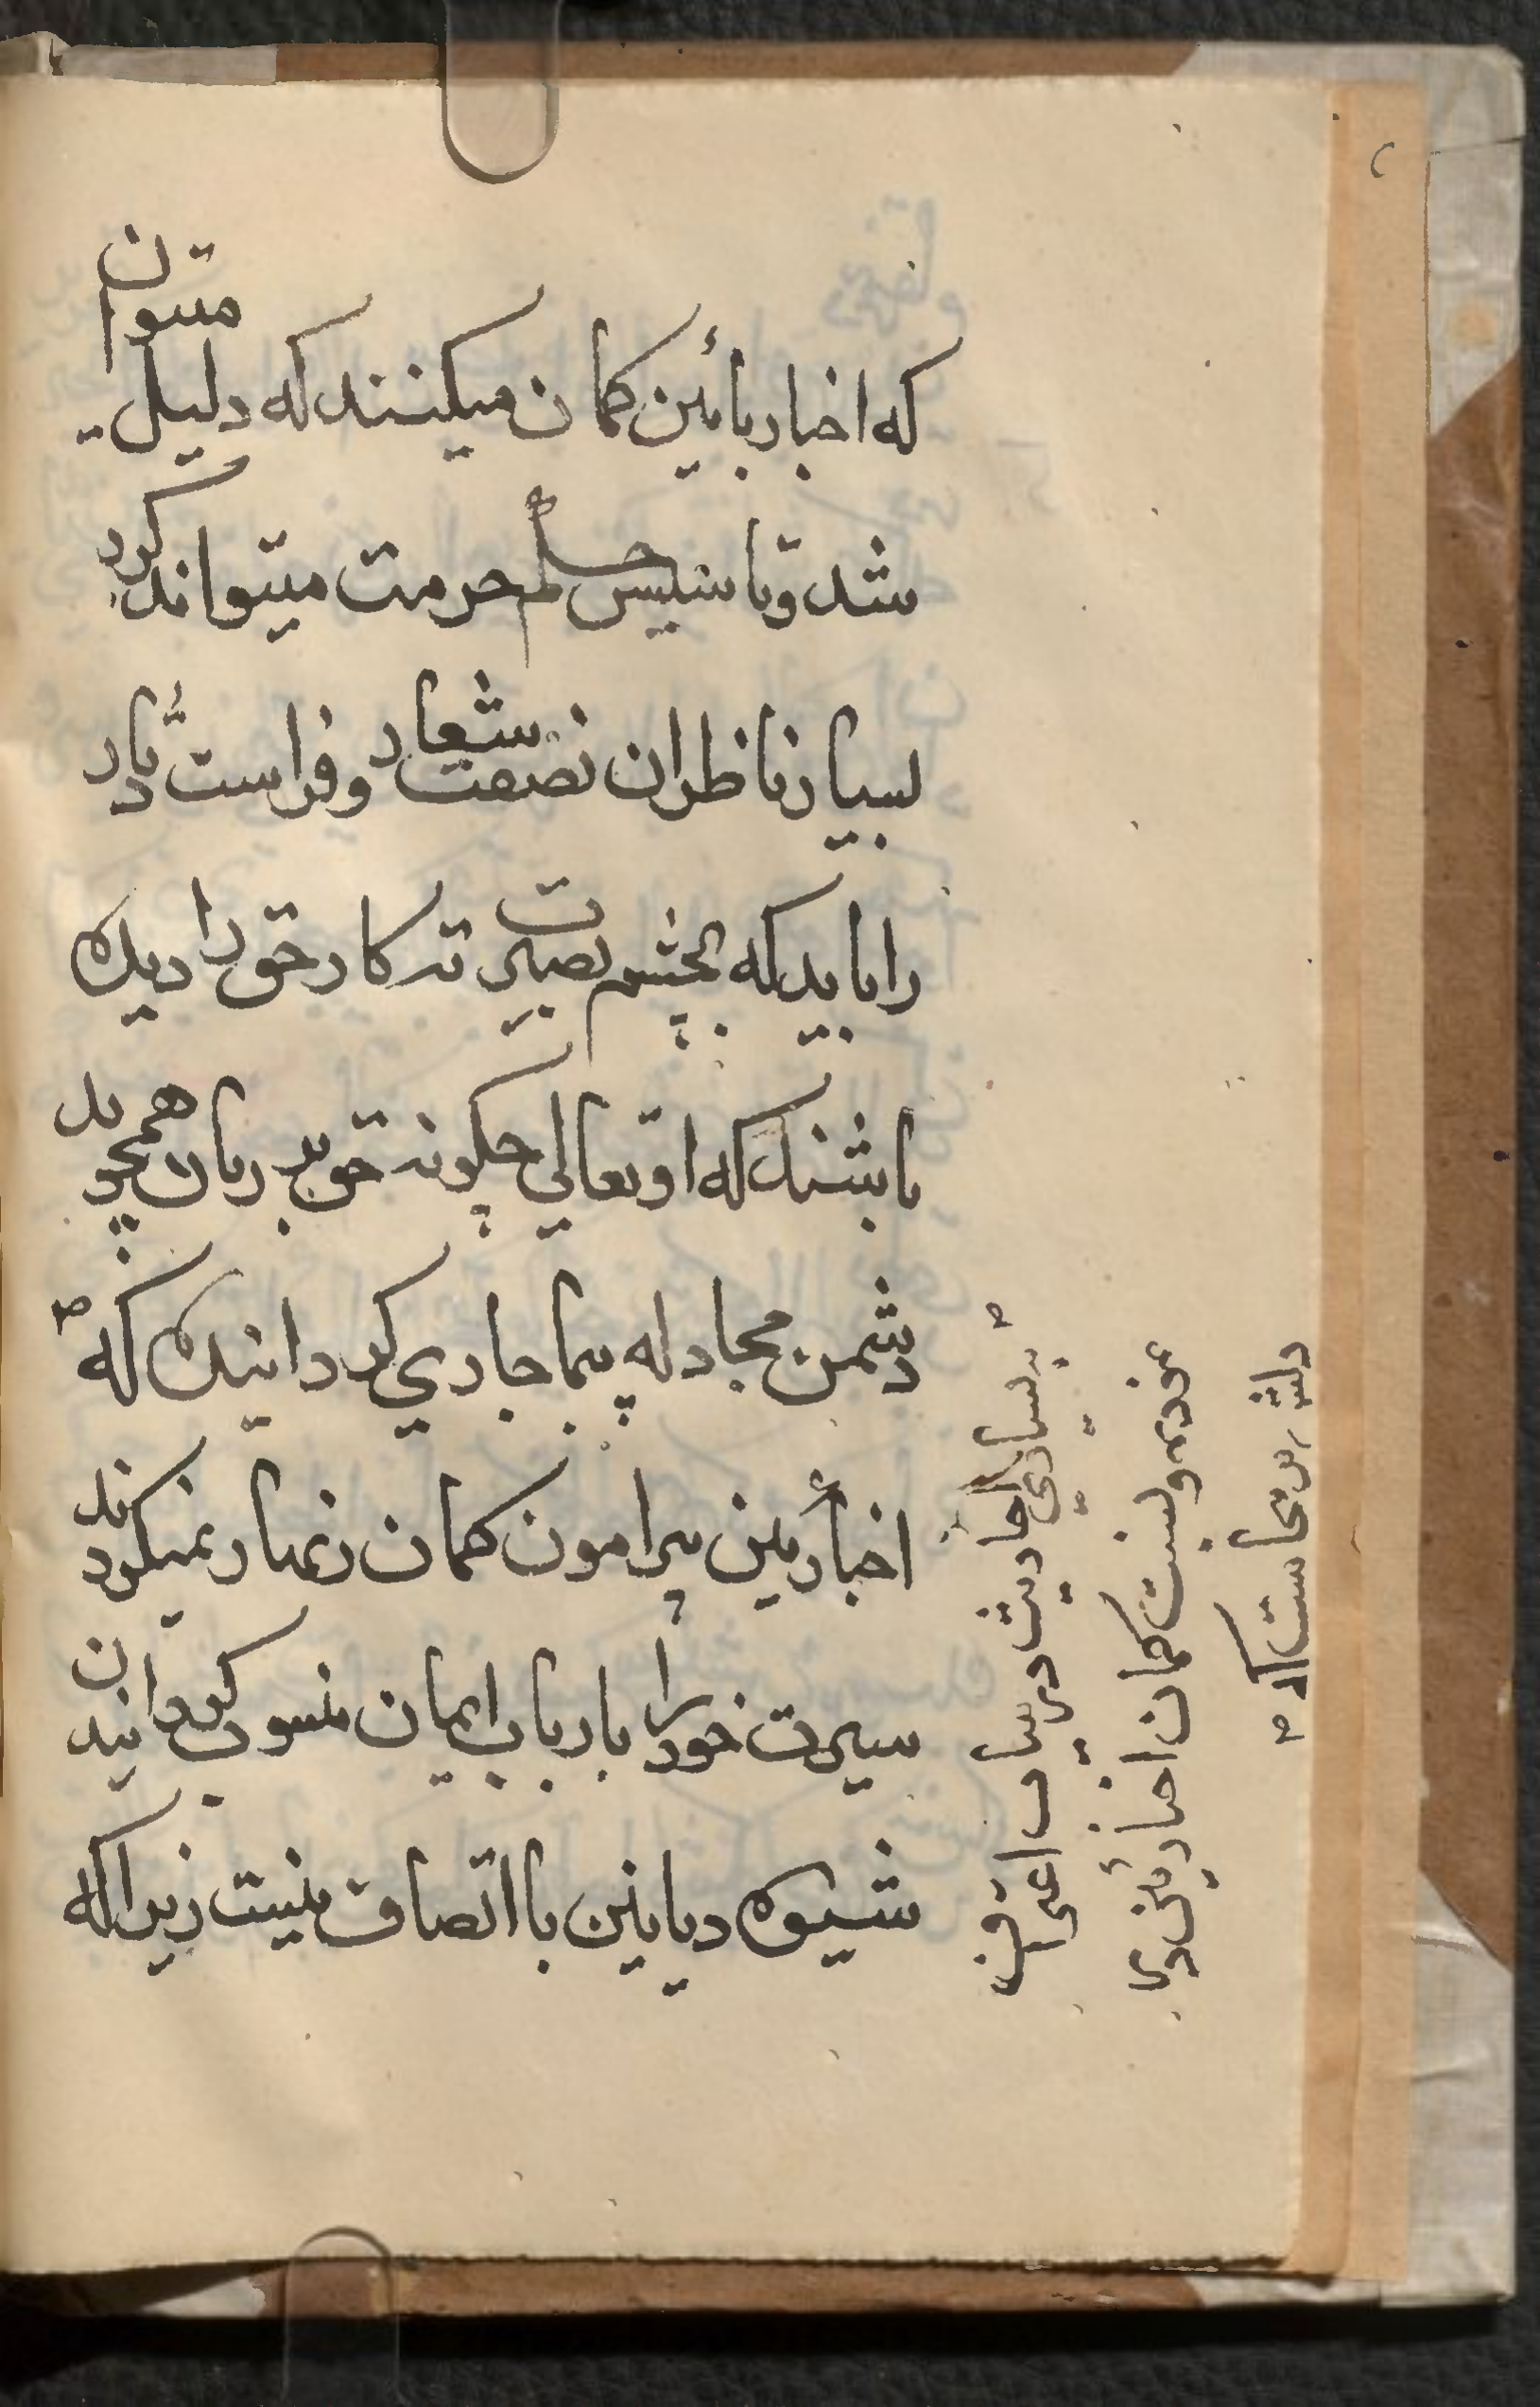 که اخبار بأین کمان میکنند که دلیل میتوان
شد و تاسیس حکم حرمت میتواند کرد
بسیار ناظران نصفت شعار و فراست دثار
را باید که بچشم بصیرت تر کار حق را دیده
باشند که او تعالی چکونه حق بر زبان همچو بد
دشمن مجادله پیما جاری کردانیده که
اخبارأین پیرامون کمان زنهار نمیکردند
سیرت خود را بارباب ایمان منسوب کردانیدن
شیوه دیاینین با اتصاف نیست زیرا که
بر بسیاری احادیث در بیان اعتراف
نموده و بنسبت کمان اخبارأین
دلش بر نجاست که